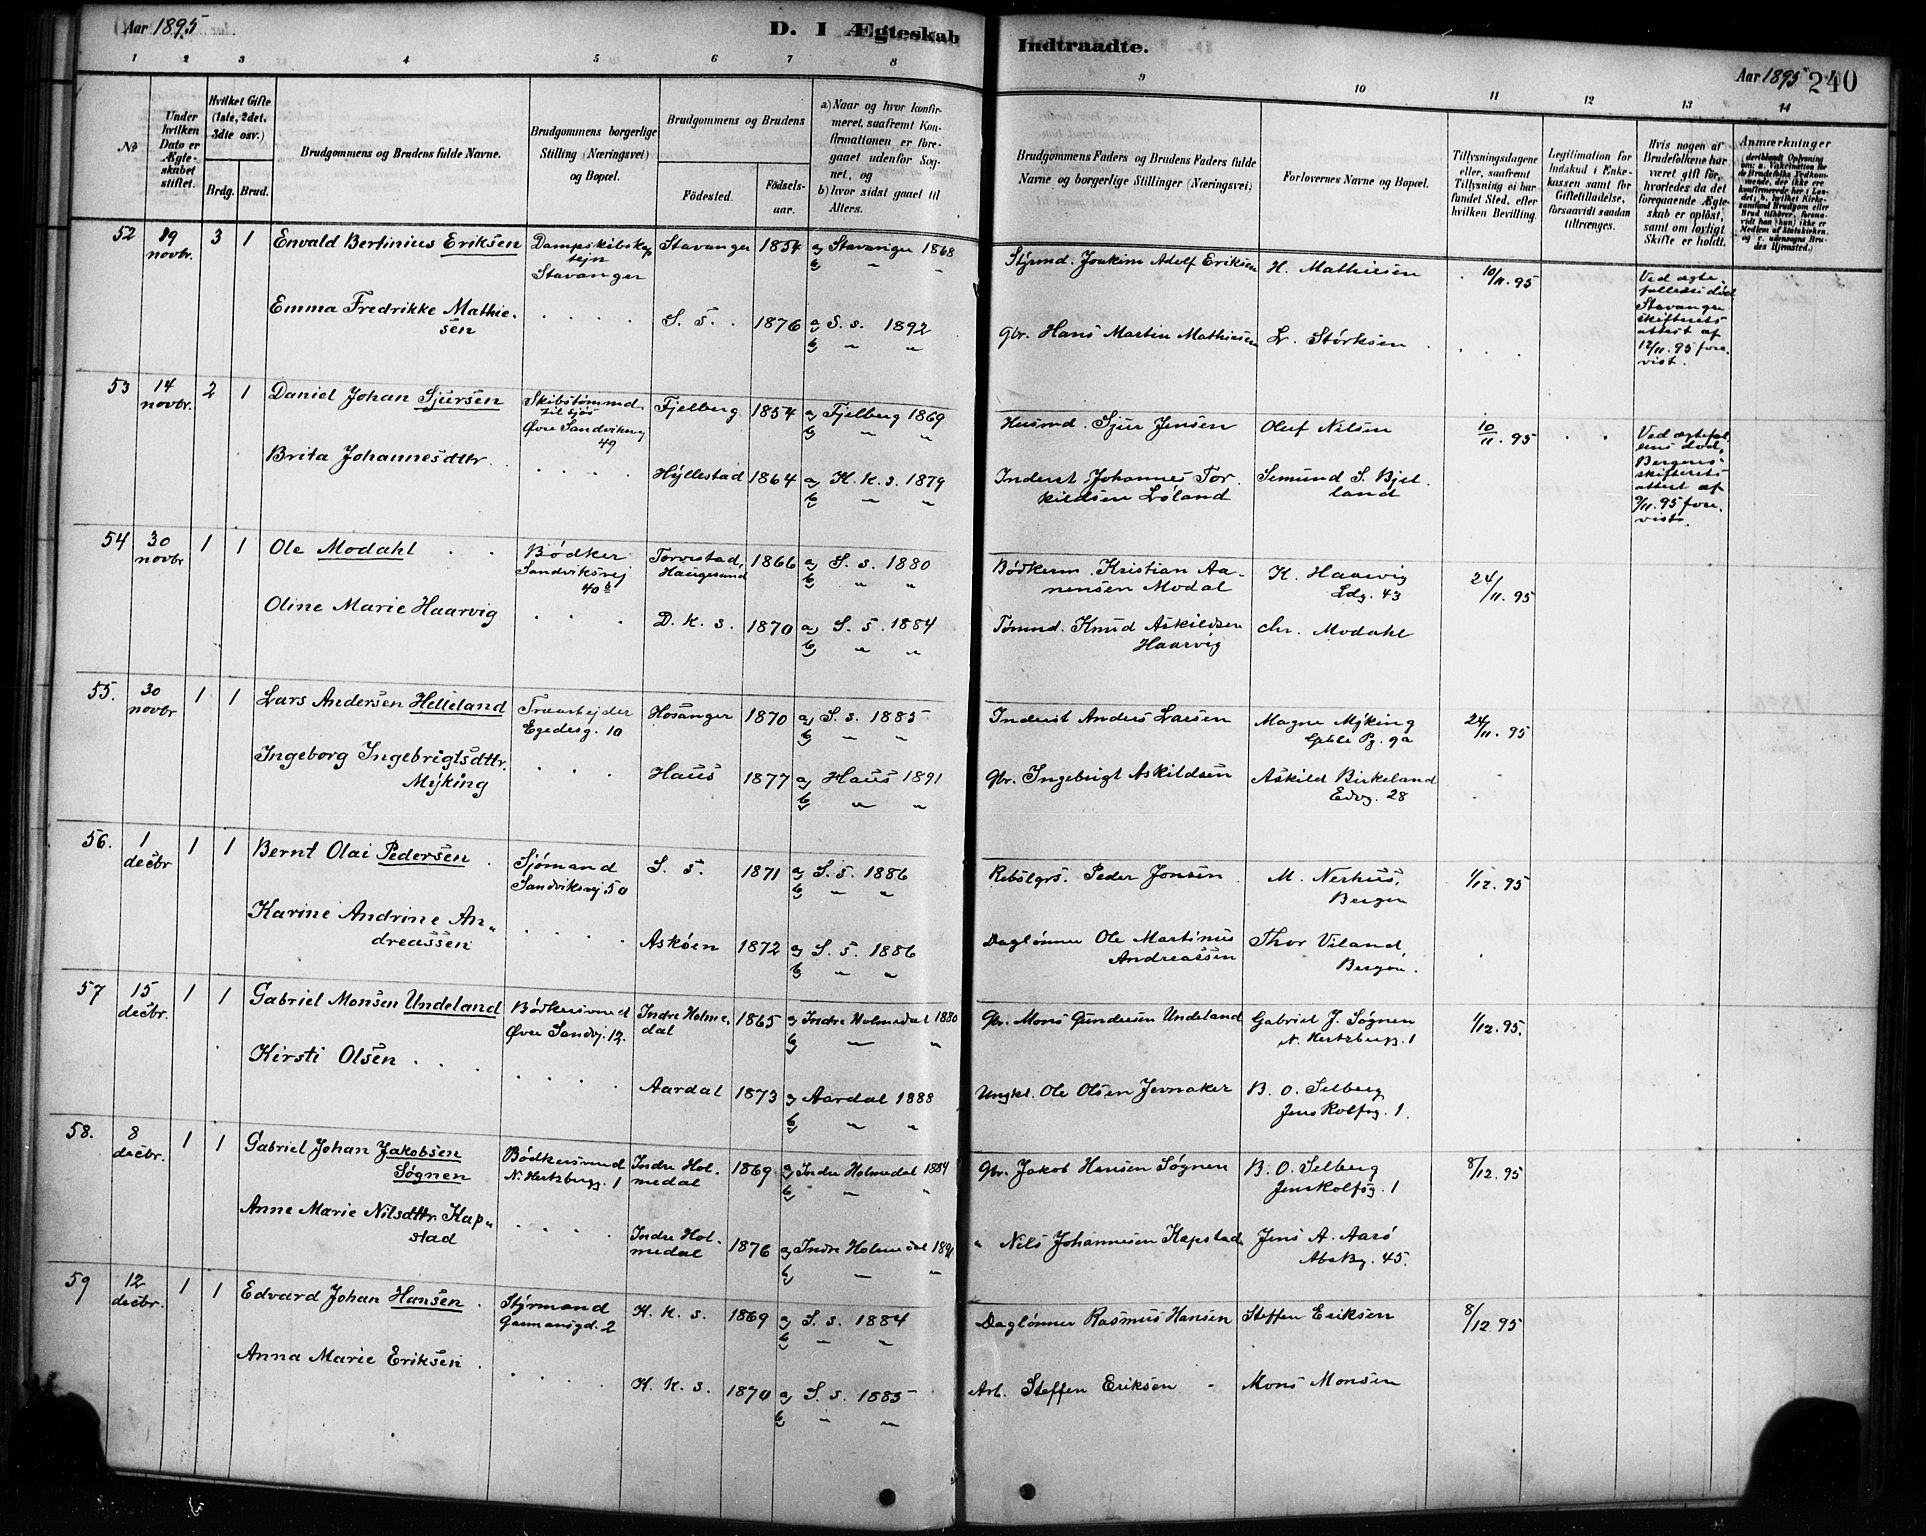 Aar 1895
D. I Ægteskab
Indtraadte.
Aar 1895
240
1 2 3 4 5 6 7 8 9 10 11 12 13 14
No
Under hvilken Dato er Ægteskabet stiftet.
Hvilket Gifte (1ste, 2det, 3die osv.)
Brdg. Brud.
Brudgommens og Brudens fulde Navne.
Brudgommens borgerlige Stilling (Næringsvei) og Bopæl.
Brudgommens og Brudens
Fødested. Fødselsaar.
a) Naar og hvor konfirmeret, saafremt Konfirmationen er foregaaet udenfor Sognet, og
b) hvor sidst gaaet til Alters.
Brudgommens Faders og Brudens Faders fulde Navne og borgerlige Stillinger (Næringsvei)
Forlovernes Navne og Bopæl.
Tillysningsdagene eller, saafremt Tillysning ei har fundet Sted, efter hvilken Bevilling.
Legitimation for Indskud i Enkekassen samt for Giftetilladelse, forsaavidt saadan tiltrænges.
Hvis nogen af Brudefolkene har været gift før, hvorledes da det foregaaende Ægteskab er opløst, samt om lovligt Skifte er holdt.
Anmærkninger
52 novbr. 3 1 Envald Bertinius Eriksen Stavanger Stavanger 1854 a) Stavanger 1868 b) " "
Styrmd. Joakim Adolf Eriksen H. Mathiesen 10/11.95
Ved ægtefælles død Stavanger skifterets attest af 12/11.95 forevist.
Emma Fredrikke Mathiesen S. s. 1876 a) S. s. 1892 b) " "
Gbr. Hans Martin Mathiesen L. Størksen
53 14 novbr. 2 1 Daniel Johan Sjursen Skibstømmd. Øvre Sandviksvej 49 Fjelberg 1854 a) Fjelberg 1869 b) " "
Husmd. Sjur Jensen Oluf Nilsen 10/11.95
Ved ægtefællens død, Bergens skifterets attest af 9/11.95 forevist.
Brita Johannesdttr. Hyllestad 1864 a) K. k. s. 1879 b) " "
Inderst Johannes Torkildsen Løland Semund S. Bjelland
54 30 novbr 1 1 Ole Modahl Bødker Sandviksvej 40 b Torvestad, Haugesund 1866 a) S. s. 1880 b) " "
Bødkerm. Kristian Aanensen Modal K. Haarvig Ldg. 43 24/11.95
Oline Marie Haarvig D. k. s. 1870 a) S. s. 1884 b) " "
Tømmd. Knud Askildsen Haarvig Chr. Modahl
55. 30 novbr 1 1 Lars Andersen Helleland Træarbejder Egedesg. 10 Hosanger 1870 a) S. s. 1885 b) " "
Inderst Anders Larsen Magne Myking 24/11.95
Ingeborg Ingebrigtsdttr. Myking Haus 1877 a) Haus 1891 b) " "
Gbr. Ingebrigt Askildsen Askild Birkeland Edvg. 28
56. 1 decbr 1 1 Bernt Olai Pedersen Sjømand Sandviksvej 50 S. s. 1871 a) S. s. 1886 b) " "
Rebslgrs. Peder Jonsen M. Nerhus, Bergen 1/12.95
Karine Andrine Andreassen Askøen 1872 a) S. s. 1886 b) " "
Daglønner Ole Martinus Andreassen Thor Viland, Bergen.
57 15 decbr. 1 1 Gabriel Monsen Undeland Bødkersvend Øvre Sandvj. 12. Indre Holmedal 1865 a) Indre Holmedal 1880 b) " "
Gbr. Mons Gundersen Undeland Gabriel J. Søgnen N. Hertzbergg. 1 1/12.95.
Kirsti Olsen Aardal 1873 a) Aardal 1888 b) " "
Ungkl. Ole Olsen Jevnaker B. O. Selberg Jens Rolfsg. 1.
58. 8 decbr. 1 1 Gabriel Johan Jakobsen Søgnen Bødkersvend N. Hertzbergg. 1 Indre Holmedal 1869 a) Indre Holmedal 1884 b) " "
Gbr. Jakob Hansen Søgnen B. O. Selberg Jens Rolfsg. 1 8/12.95
Anne Marie Nilsdttr. Kapstad Indre Holmedal 1876 a) Indre Holmedal 1891 b) " "
" Nils Johannesen Kapstad Jens A. Aarø 45.
59 12 decbr. 1 1 Edvard Johan Hansen Styrmand Garmansgd. 2 K. k. s. 1869 a) S. s. 1884 b) " "
Daglønner Rasmus Hansen Steffen Eriksen 8/12.95
Anna Marie Eriksen K. k. s. 1870 a) S. s. 1885 b) " "
Arb. Steffen Eriksen Mons Monsen